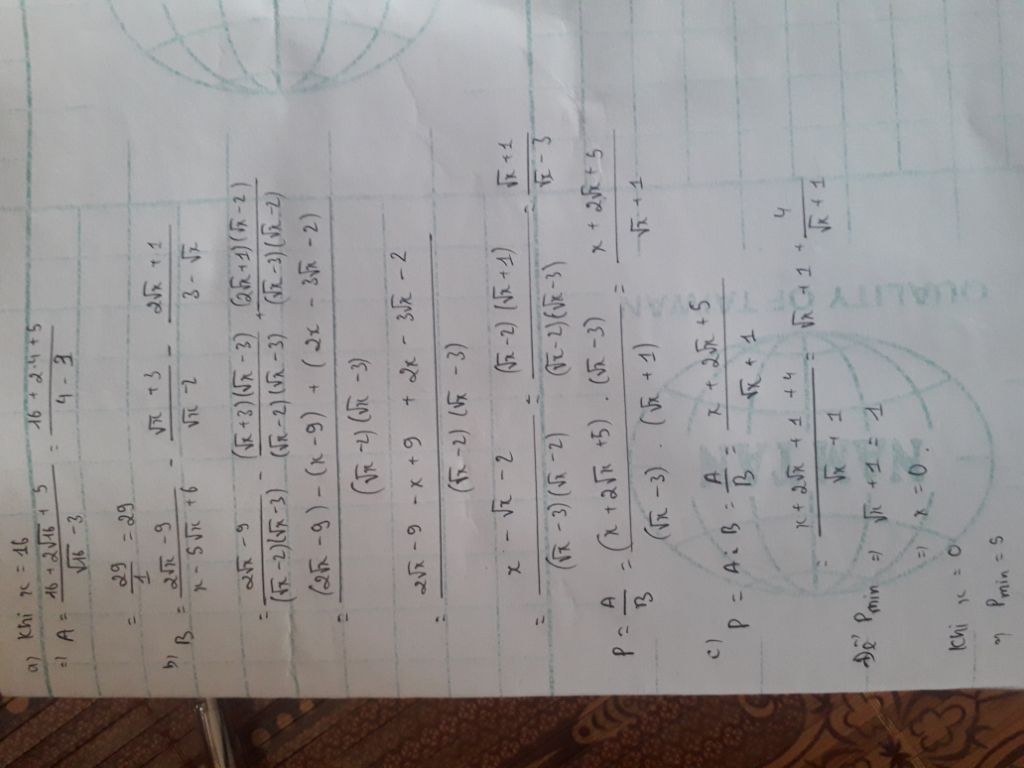 a) Khi x = 16
=) A = (16 + 2√16 + 5)/(√16 - 3) = (16 + 2.4 + 5)/(4 - 3)
= 29/1 = 29
b) B = (2√x - 9)/(x - 5√x + 6) - (√x + 3)/(√x - 2) - (2√x + 1)/(3 - √x)
= (2√x - 9)/((√x - 2)(√x - 3)) - ((√x + 3)(√x - 3))/((√x - 2)(√x - 3)) + ((2√x + 1)(√x - 2))/((√x - 3)(√x - 2))
= ((2√x - 9) - (x - 9) + (2x - 3√x - 2))/((√x - 2)(√x - 3))
= (2√x - 9 - x + 9 + 2x - 3√x - 2)/((√x - 2)(√x - 3))
= (x - √x - 2)/((√x - 3)(√x - 2)) = ((√x - 2)(√x + 1))/((√x - 2)(√x - 3)) = (√x + 1)/(√x - 3)
P = A/B = ((x + 2√x + 5).(√x - 3))/((√x - 3).(√x + 1)) = (x + 2√x + 5)/(√x + 1)
c) P = A : B = A/B = (x + 2√x + 5)/(√x + 1)
= (x + 2√x + 1 + 4)/(√x + 1) = √x + 1 + 4/(√x + 1)
Để Pmin =) √x + 1 = 1
=) x = 0.
Khi x = 0
=) Pmin = 5
QUALITY OF TAIWAN